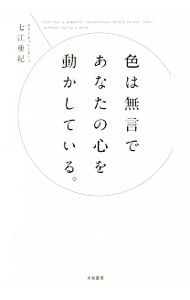 色は無言で
あなたの心を
動かしている。
七江亜紀
大和書房